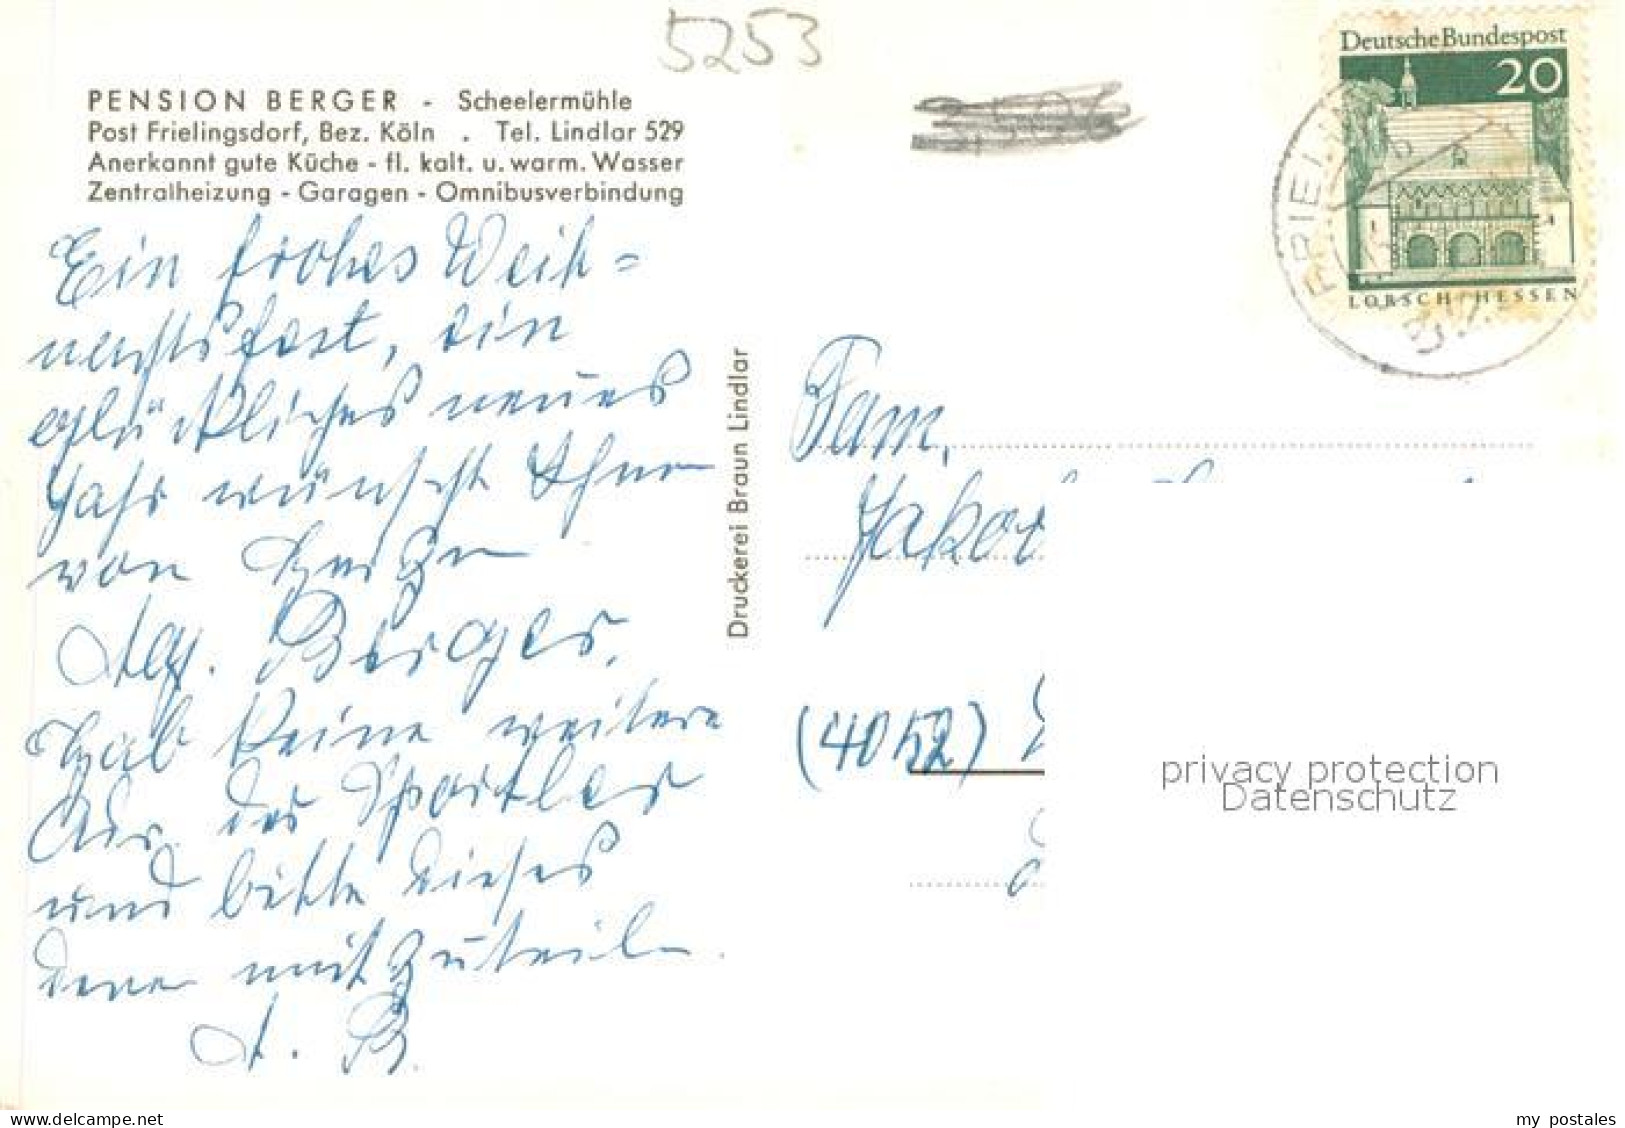 5253
PENSION BERGER - Scheelermühle
Post Frielingsdorf, Bez. Köln . Tel. Lindlar 529
Anerkannt gute Küche - fl. kalt. u. warm. Wasser
Zentralheizung - Garagen - Omnibusverbindung
Ein frohes Weih=
nachtsfest, ein
glückliches neues
Jahr wünscht Ihnen
von Herzen
Berger.
Hab keine weitere
Adr. der Sportler
und bitte dieses
denen mitzuteilen.
A. B.
Druckerei Braun Lindlar
Deutsche Bundespost
20
LORSCH HESSEN
Fam.
(4052)
privacy protection
Datenschutz
my postales